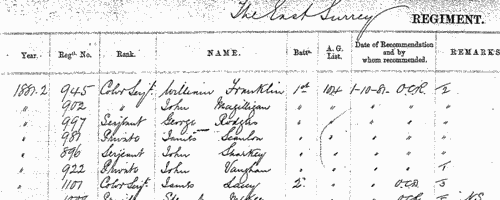 The East Surrey REGIMENT.
Year. Regtl. No. Rank. NAME. Batn. A. G. List. Date of Recommendation and by whom recommended. REMARKS
1881-2 945 Color Serjt. William Franklin 1st 104 1-10-81 O.C.R. 2
" 902 " John Magilligan " " " " "
" 997 Serjeant George Rodgers " " " " "
" 987 Private James Scanlon " " " "
" 896 Serjeant John Sharkey " " " "
" 922 Private John Vaughan " " " " 1
" 1101 Color Serjt. James Lacey 2 " " O.C.R.